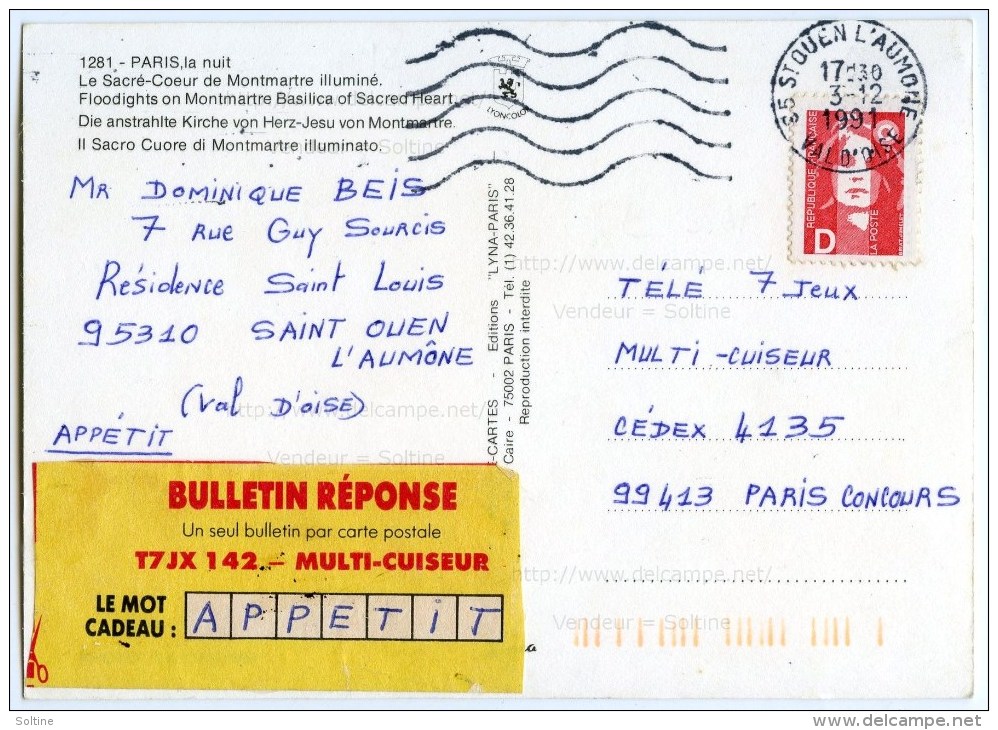 1281 - PARIS, la nuit
Le Sacré-Coeur de Montmartre illuminé.
Floodights on Montmartre Basilica of Sacred Heart.
Die anstrahlte Kirche von Herz-Jesu von Montmartre.
Il Sacro Cuore di Montmartre illuminato.
LYONCOLOR
95 ST OUEN L'AUMONE
17H30
3-12
1991
VAL D'OISE
REPUBLIQUE FRANÇAISE
D
LA POSTE
MR DOMINIQUE BEIS
7 RUE GUY SOURCIS
Résidence Saint Louis
95310 SAINT OUEN
L'AUMÔNE
(Val D'OISE)
APPÉTIT
-CARTES - Editions "LYNA-PARIS"
Caire - 75002 PARIS - Tél. (1) 42.36.41.28
Reproduction interdite
TÉLÉ 7 Jeux
MULTI-CUISEUR
CÉDEX 4135
99413 PARIS CONCOURS
BULLETIN RÉPONSE
Un seul bulletin par carte postale
T7JX 142 - MULTI-CUISEUR
LE MOT
CADEAU : APPETIT
http://www.delcampe.net/
Vendeur = Soltine
http://www.delcampe.net/
Vendeur = Soltine
http://www.delcampe.net/
Vendeur = Soltine
Soltine
delcampe.net